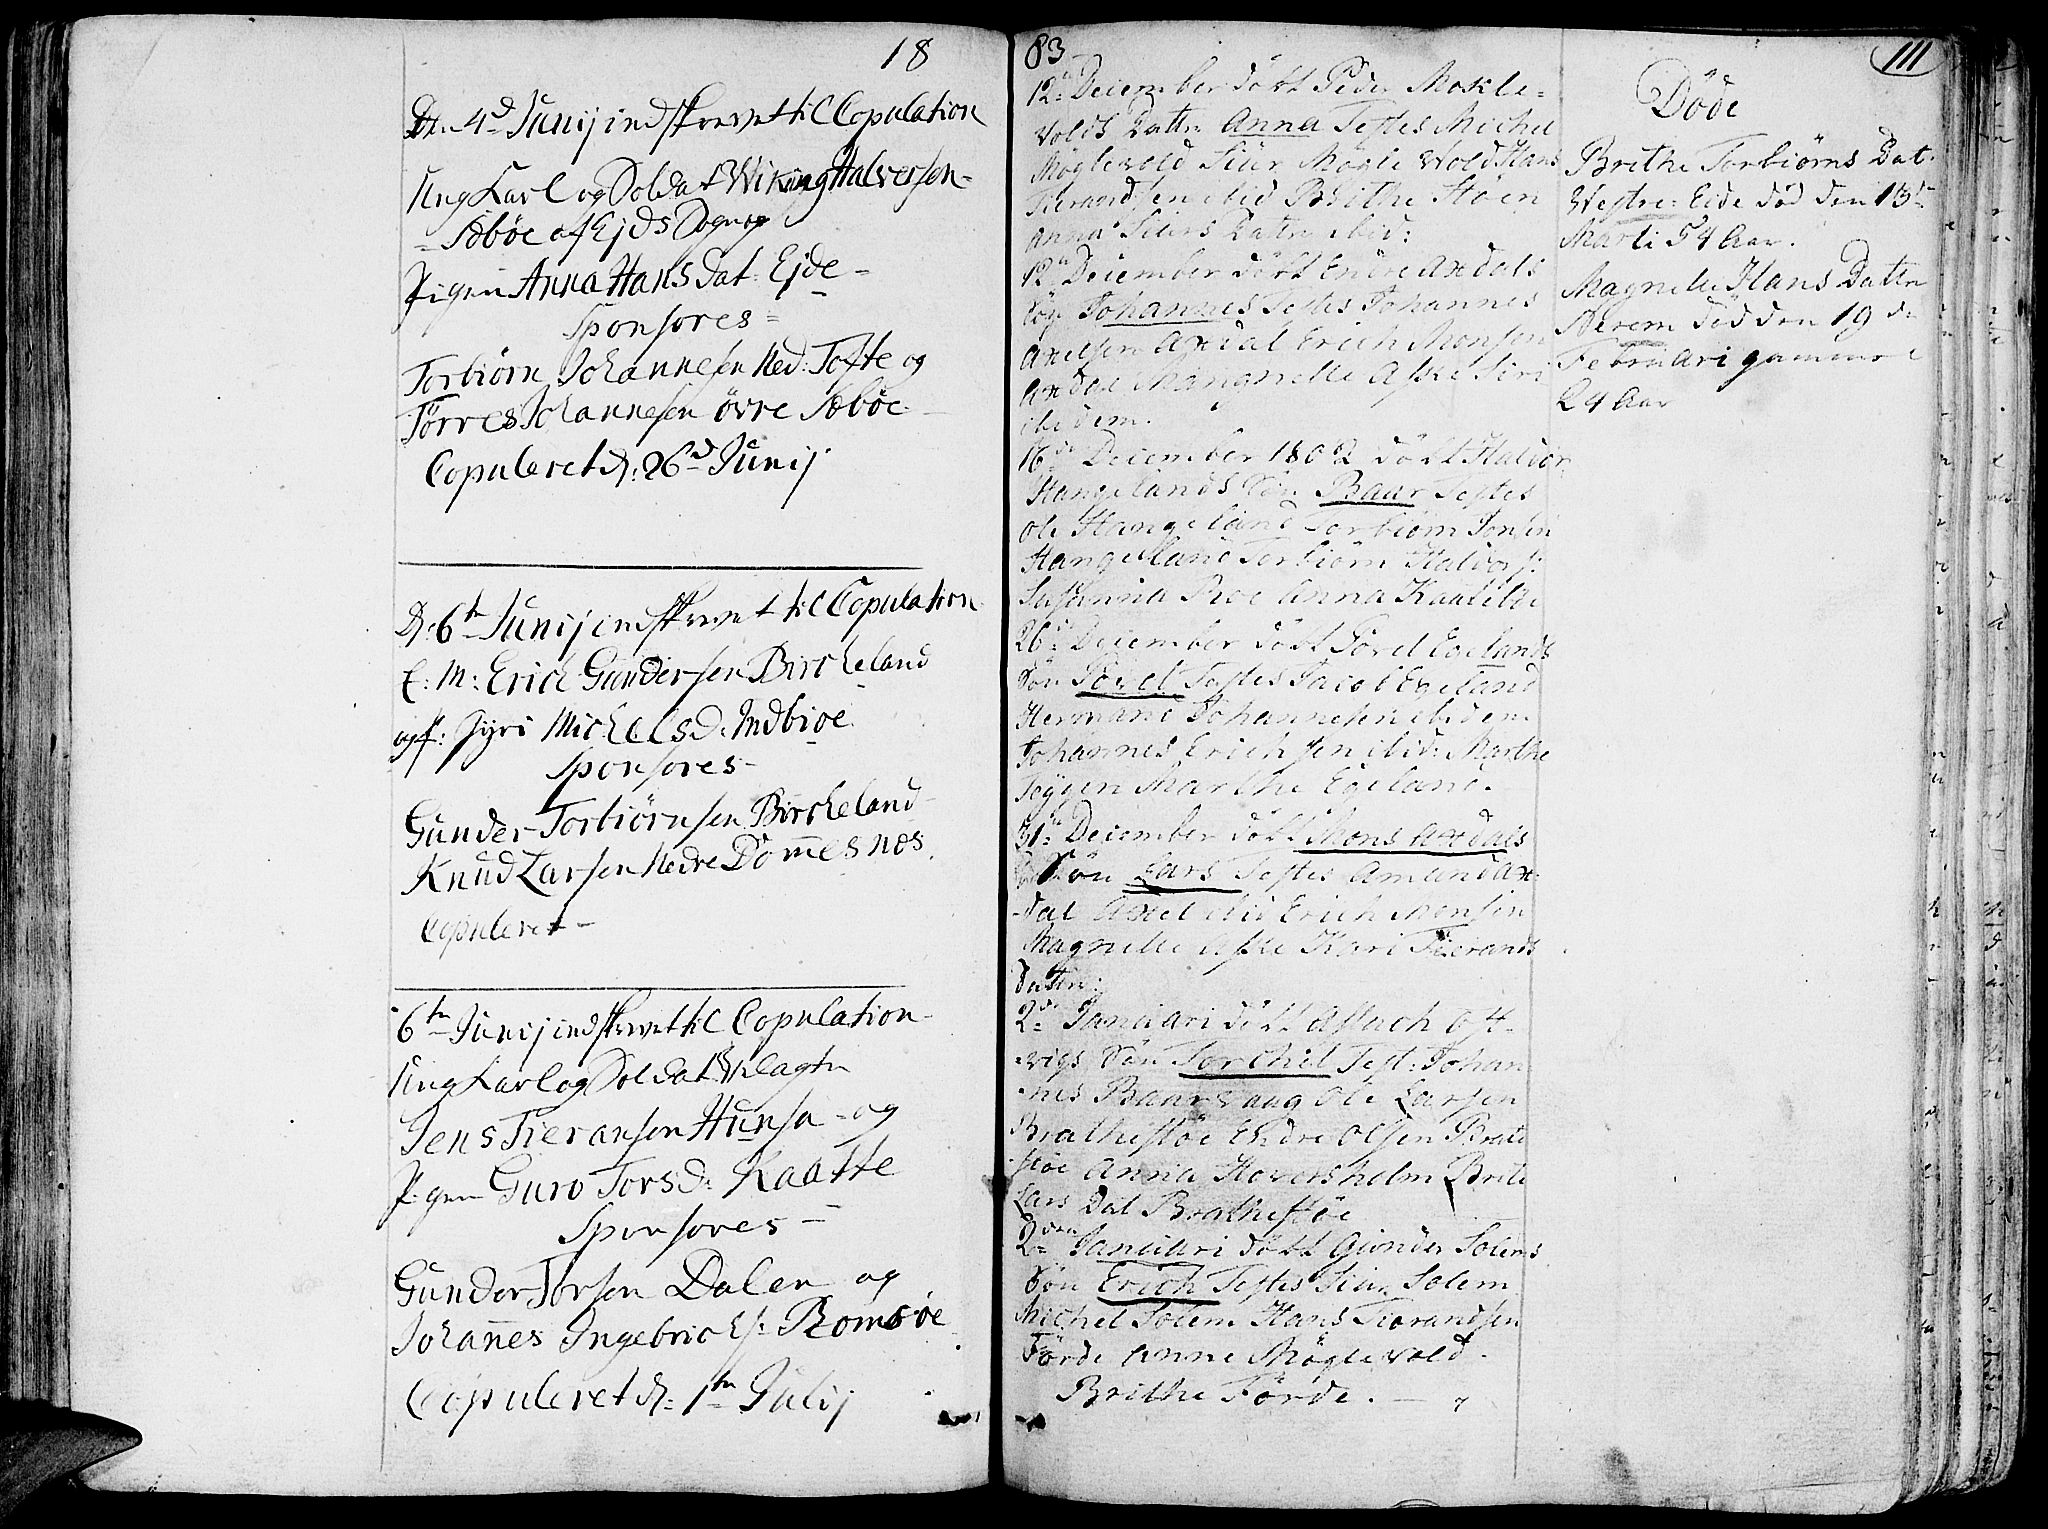 18
D. 4d Junij indskrevet til Copulation
Ung Karl og Soldat Wiking Halversen
Sæbøe af Ejds Sogn og
Pigen Anna Hans dat: Ejde
Sponsores
Torbiørn Johannesen Ned: Tofte og
Tørres Johannesen øvre Sæbøe
Copuleret d: 26d Junij
D: 6te Junij indskrevet til Copulation
E: M: Erich Gundersen Bircheland
og P: Jyri Michelsd: Indbioe
Sponsores
Gunder Torbiørnsen Bircheland
Knud Larsen Nedre Dommesnes
Copuleret
6te Junij indskrevet til Copulation
Ung Karl og Soldat
Jens Tieransen Hunsa og
Pigen Guro Torsd: Kaatte
Sponsores
Gunder Torsen Dalen og
Johannes Ingebrichs: Romsøe
Copuleret d: 1te Julij
83
12 December døbt Peder Mokle=
volds Datter Anna Testes Michel
Møglevold Siur Møgle vold Hans
Tierandsen ibid Brithe Støen
Anna Siurs Datter ibid:
12 December døbt Endre Axdals
Søn Johannes Testes Johannes
Axelsen Axdal Erich Monsen
Axdal Mangnelle Aske Siri
ibidem.
16de December 1802 døbt Haldor
Hangelands Søn Baar Testes
Ole Hangeland Torbiørn Jonsen
Hangeland Torbiørn Haldors:
Susanna Roe Anna
26 December døbt Tørel Egelands
Søn Testes Jacob Egeland
Hermand Johannesen ibidem
Johannes Erichsen ibid: Marthe
Marthe Egeland.
31 December døbt Mons Axdals
Søn Lars Testes Amund Ax=
dal Axel ibid Erich Monsen
Magnelle Aske Kari Tierands
Datter:
2de Januari døbt Aslach
vigs Søn Torchel Test: Johan
nes Baarsvaag Ole Larsen
Brathestøe Endre Olsen Brate
støe Anna Hoversholm Brite
Lars Dat Brathestøe
2den Januari døbt Gunder Solems
Søn Erich Testes Siur Solem
Michel Solem Hans Tierandsen
Førde Anne Møglevold
Brithe Førde.
111
Døde
Brithe Torbiørns Dat:
Westre: Eide død den 13d
Marti 54 Aar.
Magnelle Hans Datter
Nerem død den 19d
Februari gammel
24 Aar